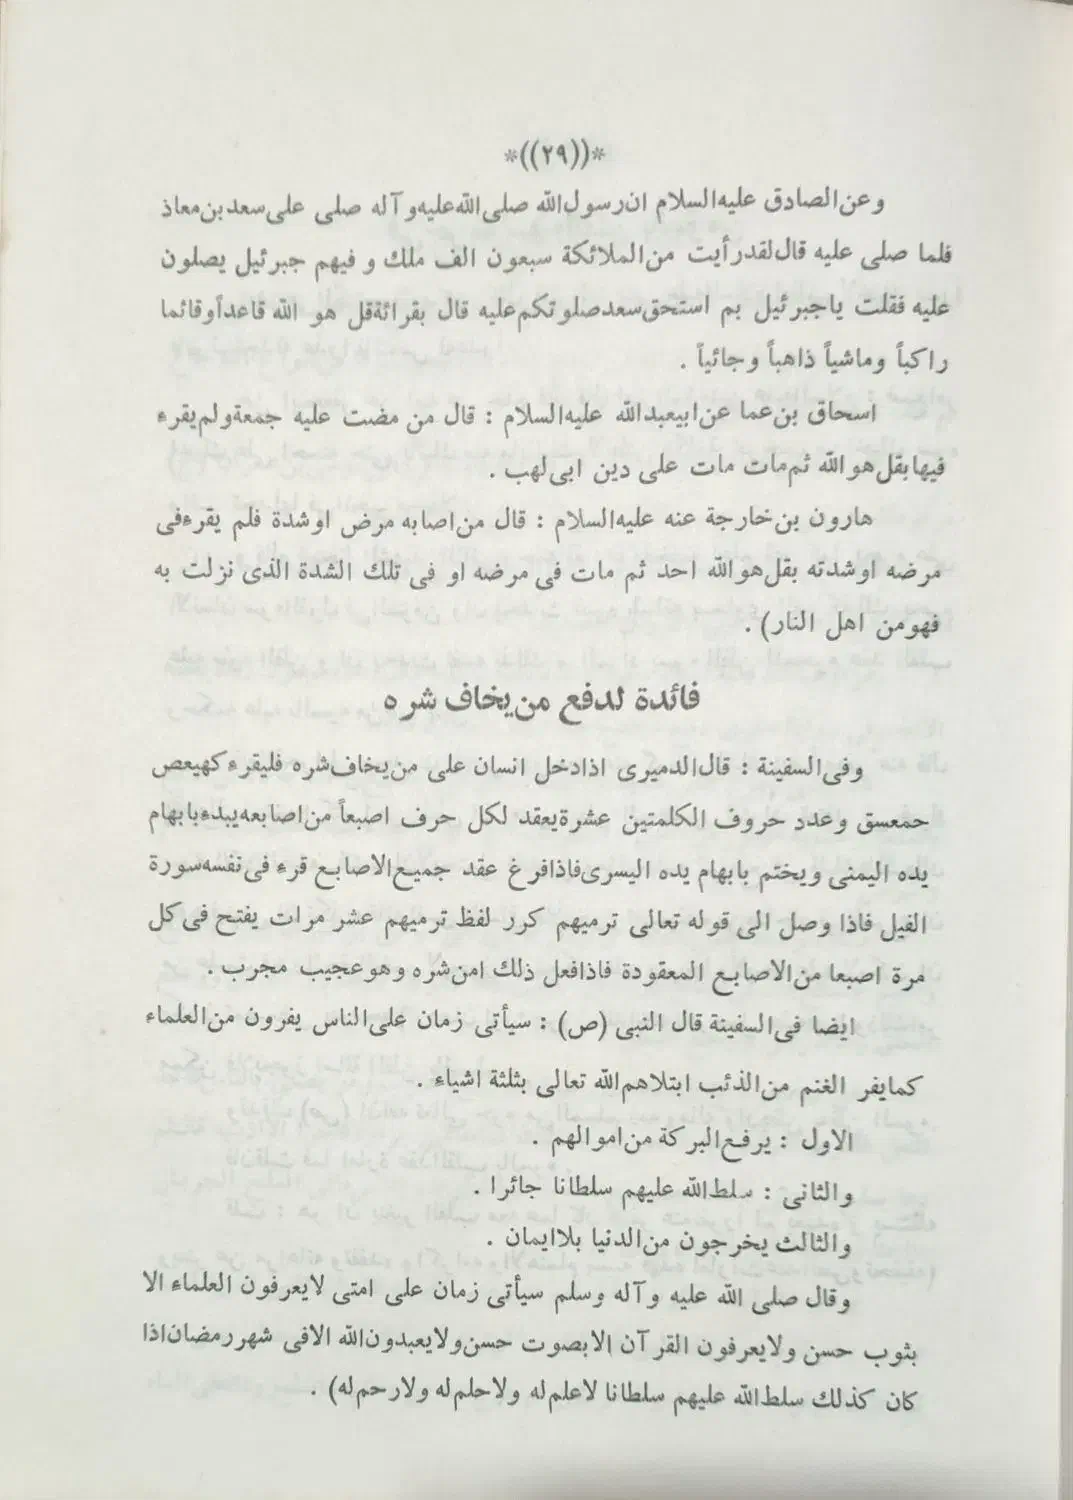 *((٢٩))*
وعن الصادق عليه السلام ان رسول الله صلى الله عليه و آله صلى على سعد بن معاذ
فلما صلى عليه قال لقد رأيت من الملائكة سبعون الف ملك و فيهم جبرئيل يصلون
عليه فقلت يا جبرئيل بم استحق سعد صلوتكم عليه قال بقرائة قل هو الله قاعداً وقائما
راكباً وماشياً ذاهباً وجائياً .
اسحاق بن عما عن ابيعبدالله عليه السلام : قال من مضت عليه جمعة ولم يقرء
فيها بقل هو الله ثم مات مات على دين ابى لهب .
هارون بن خارجة عنه عليه السلام : قال من اصابه مرض او شدة فلم يقرء فى
مرضه او شدته بقل هو الله احد ثم مات فى مرضه او فى تلك الشدة الذى نزلت به
فهو من اهل النار) .
فائدة لدفع من يخاف شره
وفى السفينة : قال الدميرى اذا دخل انسان على من يخاف شره فليقرء كهيعص
حمعسق وعدد حروف الكلمتين عشرة يعقد لكل حرف اصبعاً من اصابعه يبدء بابهام
يده اليمنى ويختم بابهام يده اليسرى فاذا فرغ عقد جميع الاصابع قرء فى نفسه سورة
الفيل فاذا وصل الى قوله تعالى ترميهم كرر لفظ ترميهم عشر مرات يفتح فى كل
مرة اصبعا من الاصابع المعقودة فاذا فعل ذلك امن شره وهو عجيب مجرب .
ايضا فى السفينة قال النبى (ص) : سيأتى زمان على الناس يفرون من العلماء
كما يفر الغنم من الذئب ابتلاهم الله تعالى بثلثة اشياء .
الاول : يرفع البركة من اموالهم .
والثانى : سلط الله عليهم سلطانا جائرا .
والثالث يخرجون من الدنيا بلا ايمان .
وقال صلى الله عليه وآله وسلم سيأتى زمان على امتى لا يعرفون العلماء الا
بثوب حسن ولا يعرفون القرآن الا بصوت حسن ولا يعبدون الله الا فى شهر رمضان اذا
كان كذلك سلط الله عليهم سلطانا لا علم له ولا حلم له ولا رحم له) .